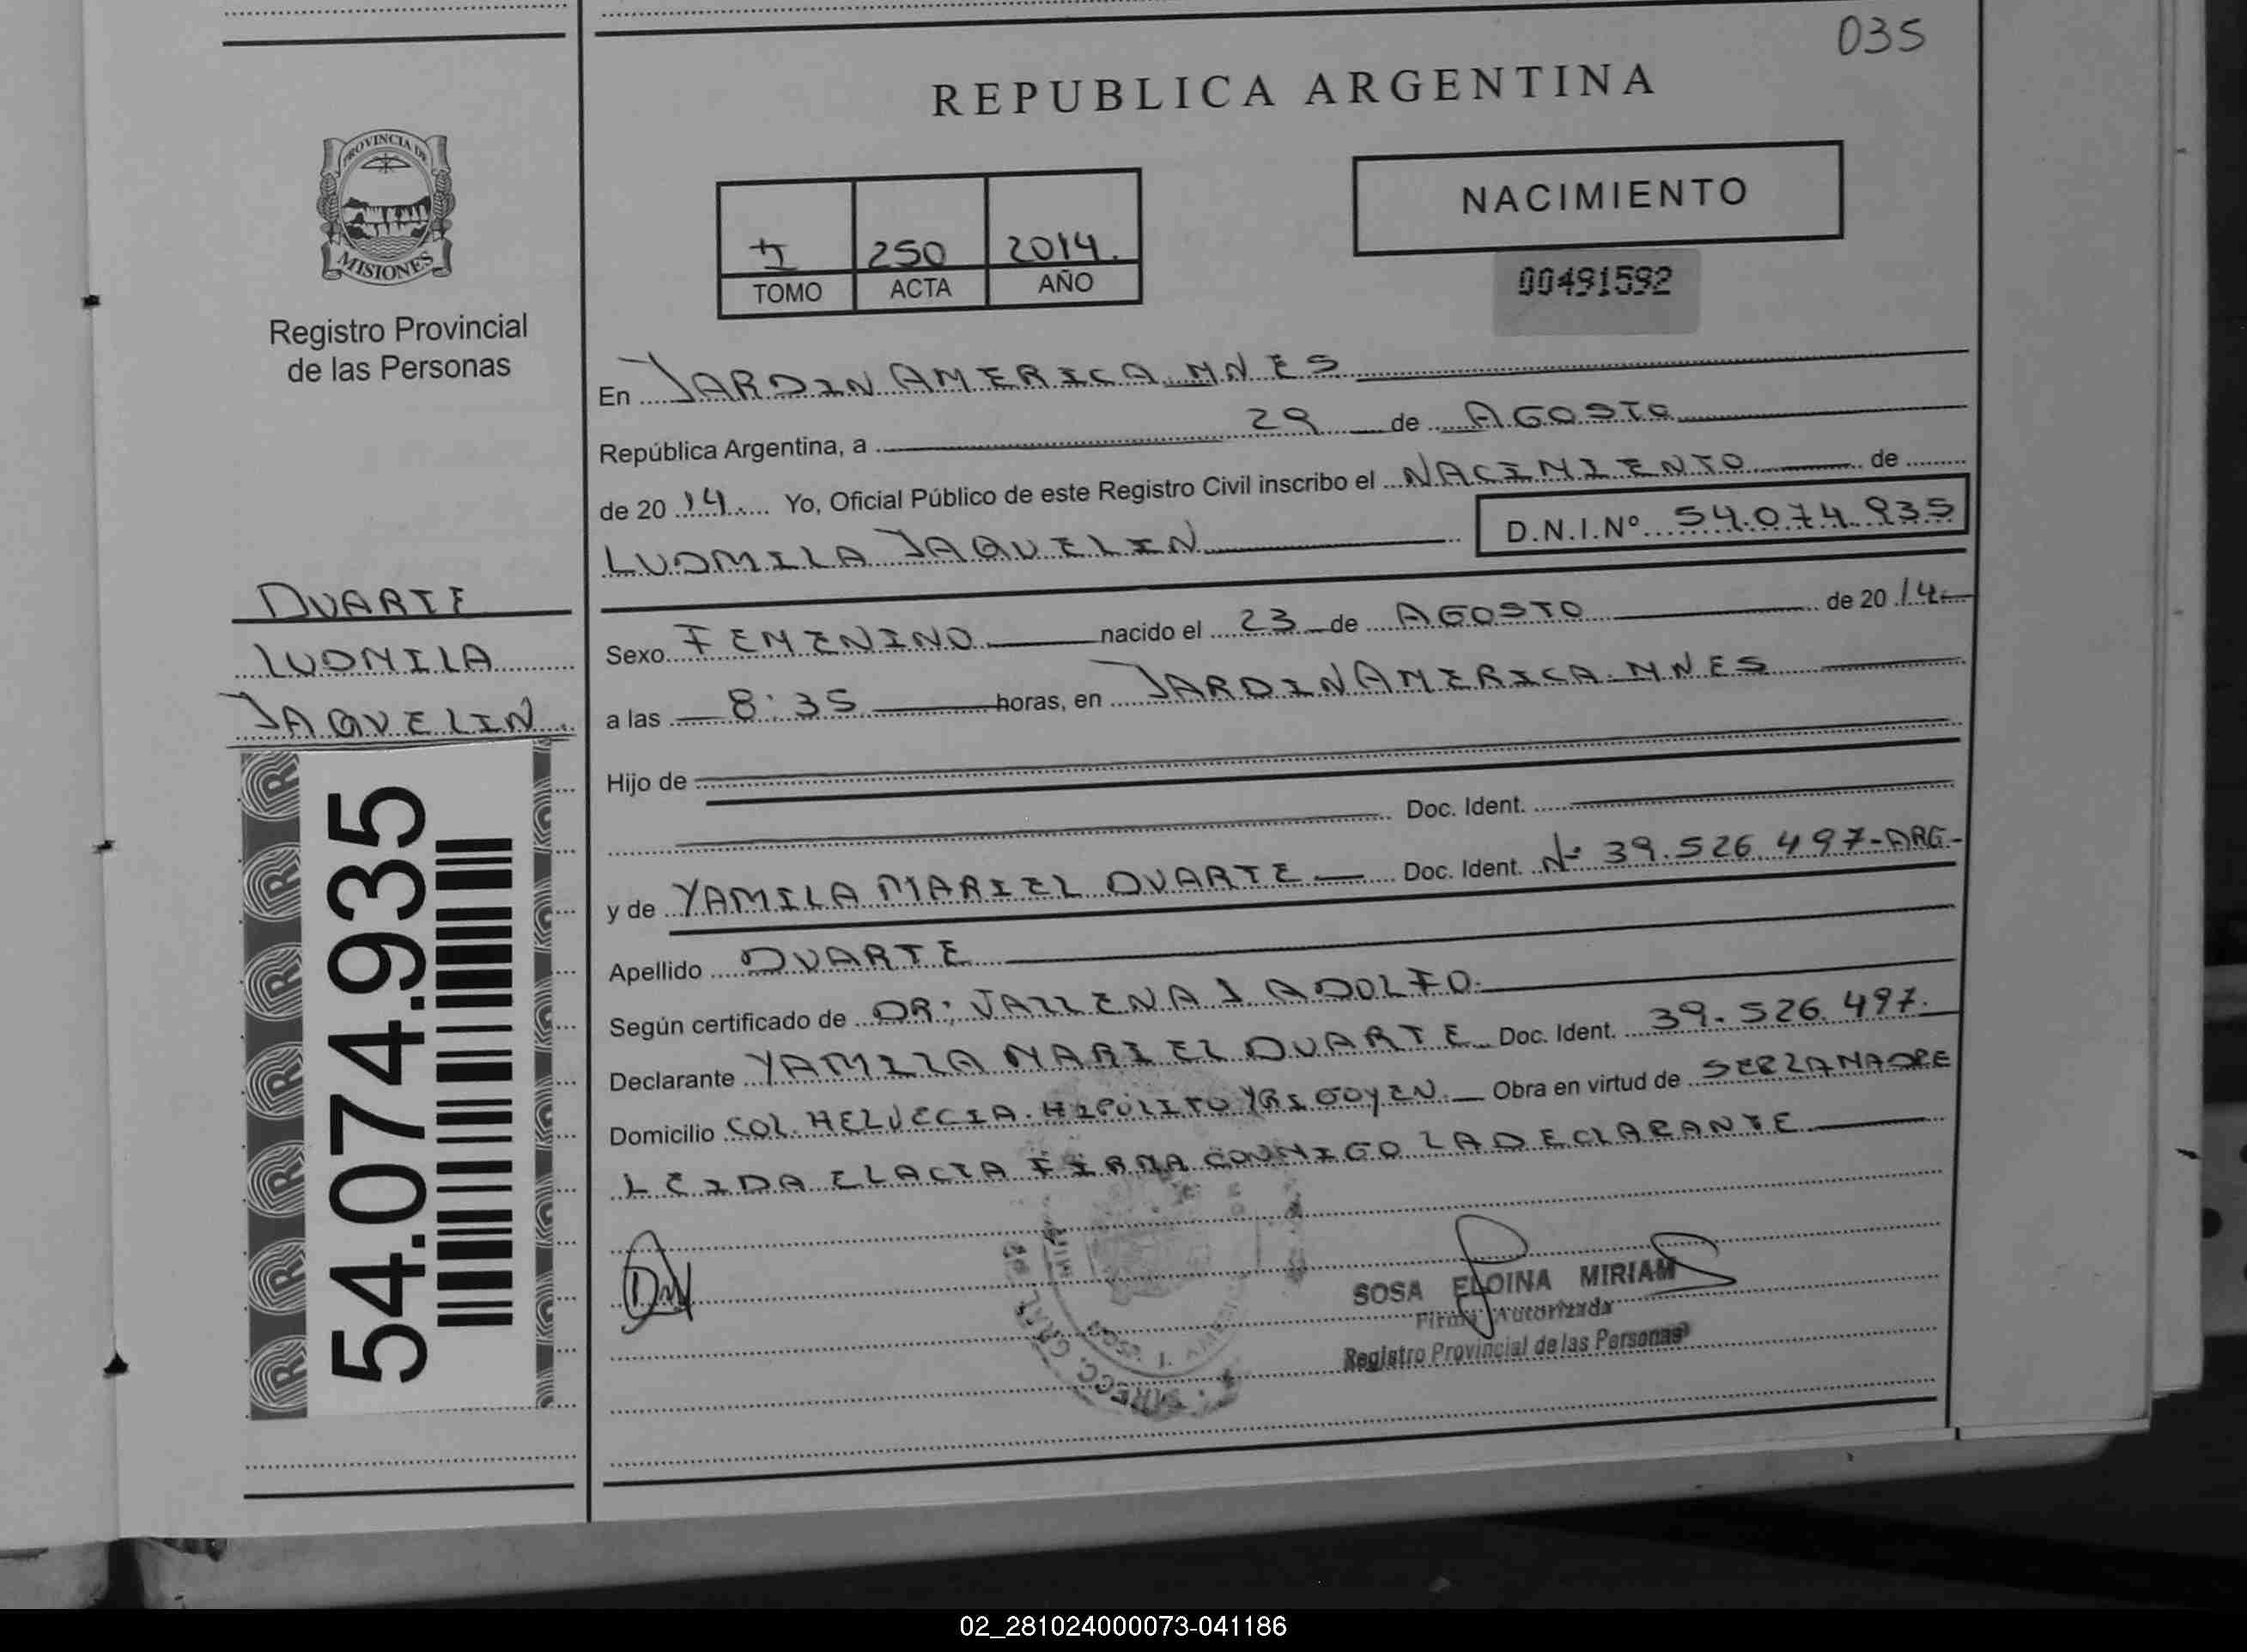 035
REPUBLICA ARGENTINA
PROVINCIA DE
MISIONES
Registro Provincial
de las Personas
I 250 2014.
TOMO ACTA AÑO
NACIMIENTO
00491592
En JARDIN AMERICA MNES
República Argentina, a 29 de AGOSTO
de 2014. Yo, Oficial Público de este Registro Civil inscribo el NACIMIENTO de
LUDMILA JAQUELIN D.N.I.Nº 54.074.935
DUARTE
LUDMILA
JAQUELIN.
54.074.935
Sexo FEMENINO nacido el 23 de AGOSTO de 2014
a las 8:35 horas, en JARDIN AMERICA. MNES
Hijo de
Doc. Ident.
y de YAMILA MARIEL DUARTE Doc. Ident. Nº 39.526.497-ARG-
Apellido DUARTE
Según certificado de DR: ADOLFO.
Declarante YAMILA MARIEL DUARTE Doc. Ident. 39.526.497.
Domicilio COL. HELVECIA. HIPOLITO YRIGOYEN. Obra en virtud de SER LA MADRE
LEIDA EL ACTA FIRMA CONMIGO LA DECLARANTE
SOSA ELOINA MIRIAM
Firma Autorizada
Registro Provincial de las Personas
02_281024000073-041186